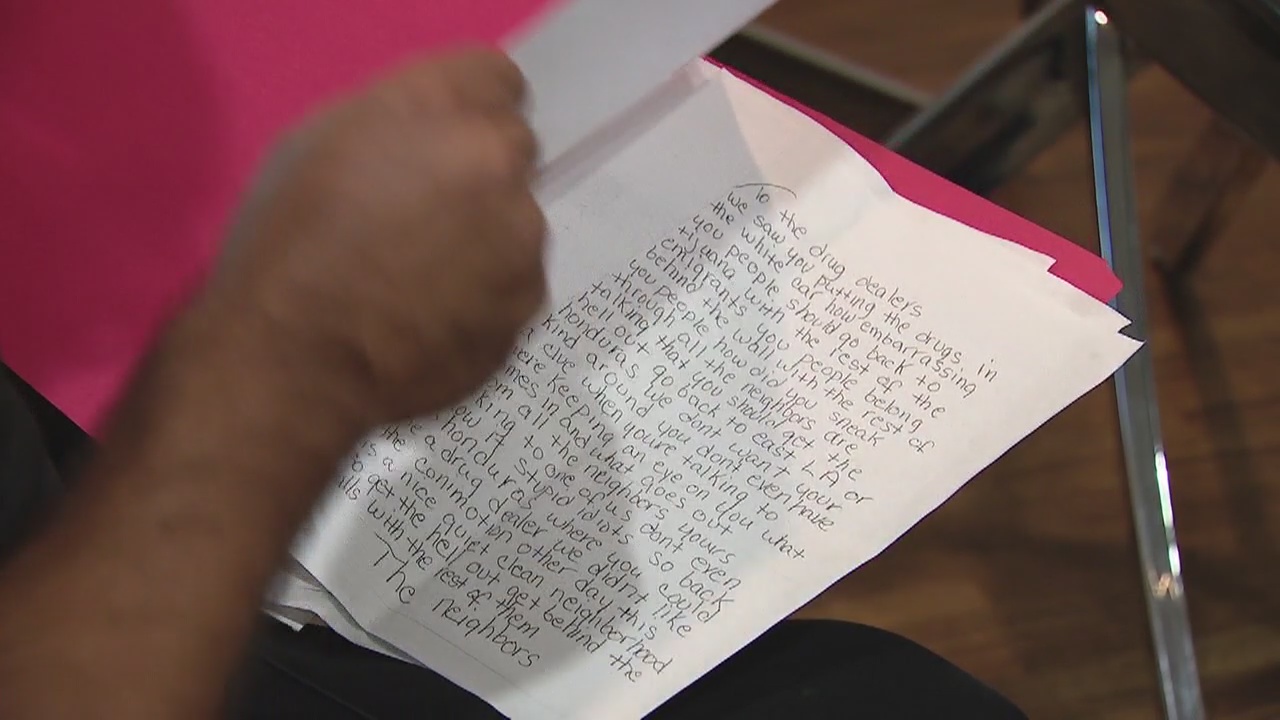 To the drug dealers
we saw you putting the drugs in
the white car how embarrassing
you people should go back to
tijuana with the rest of the
emigrants you people belong
behind the wall with the rest of
you people how did you sneak
through all the neighbors are
talking that you should get the
hell out go back to east LA or
honduras we dont want your
kind around you dont even have
a clue when youre talking to
were keeping an eye on you what
in and what goes out
all the neighbors yours
to one of us dont even
it stupid idiots so back
honduras where you could
a drug dealer we didnt like
the comimotion other day this
is a nice quiet clean neighborhood
get the hell out get behind the
with the rest of them
The neighbors